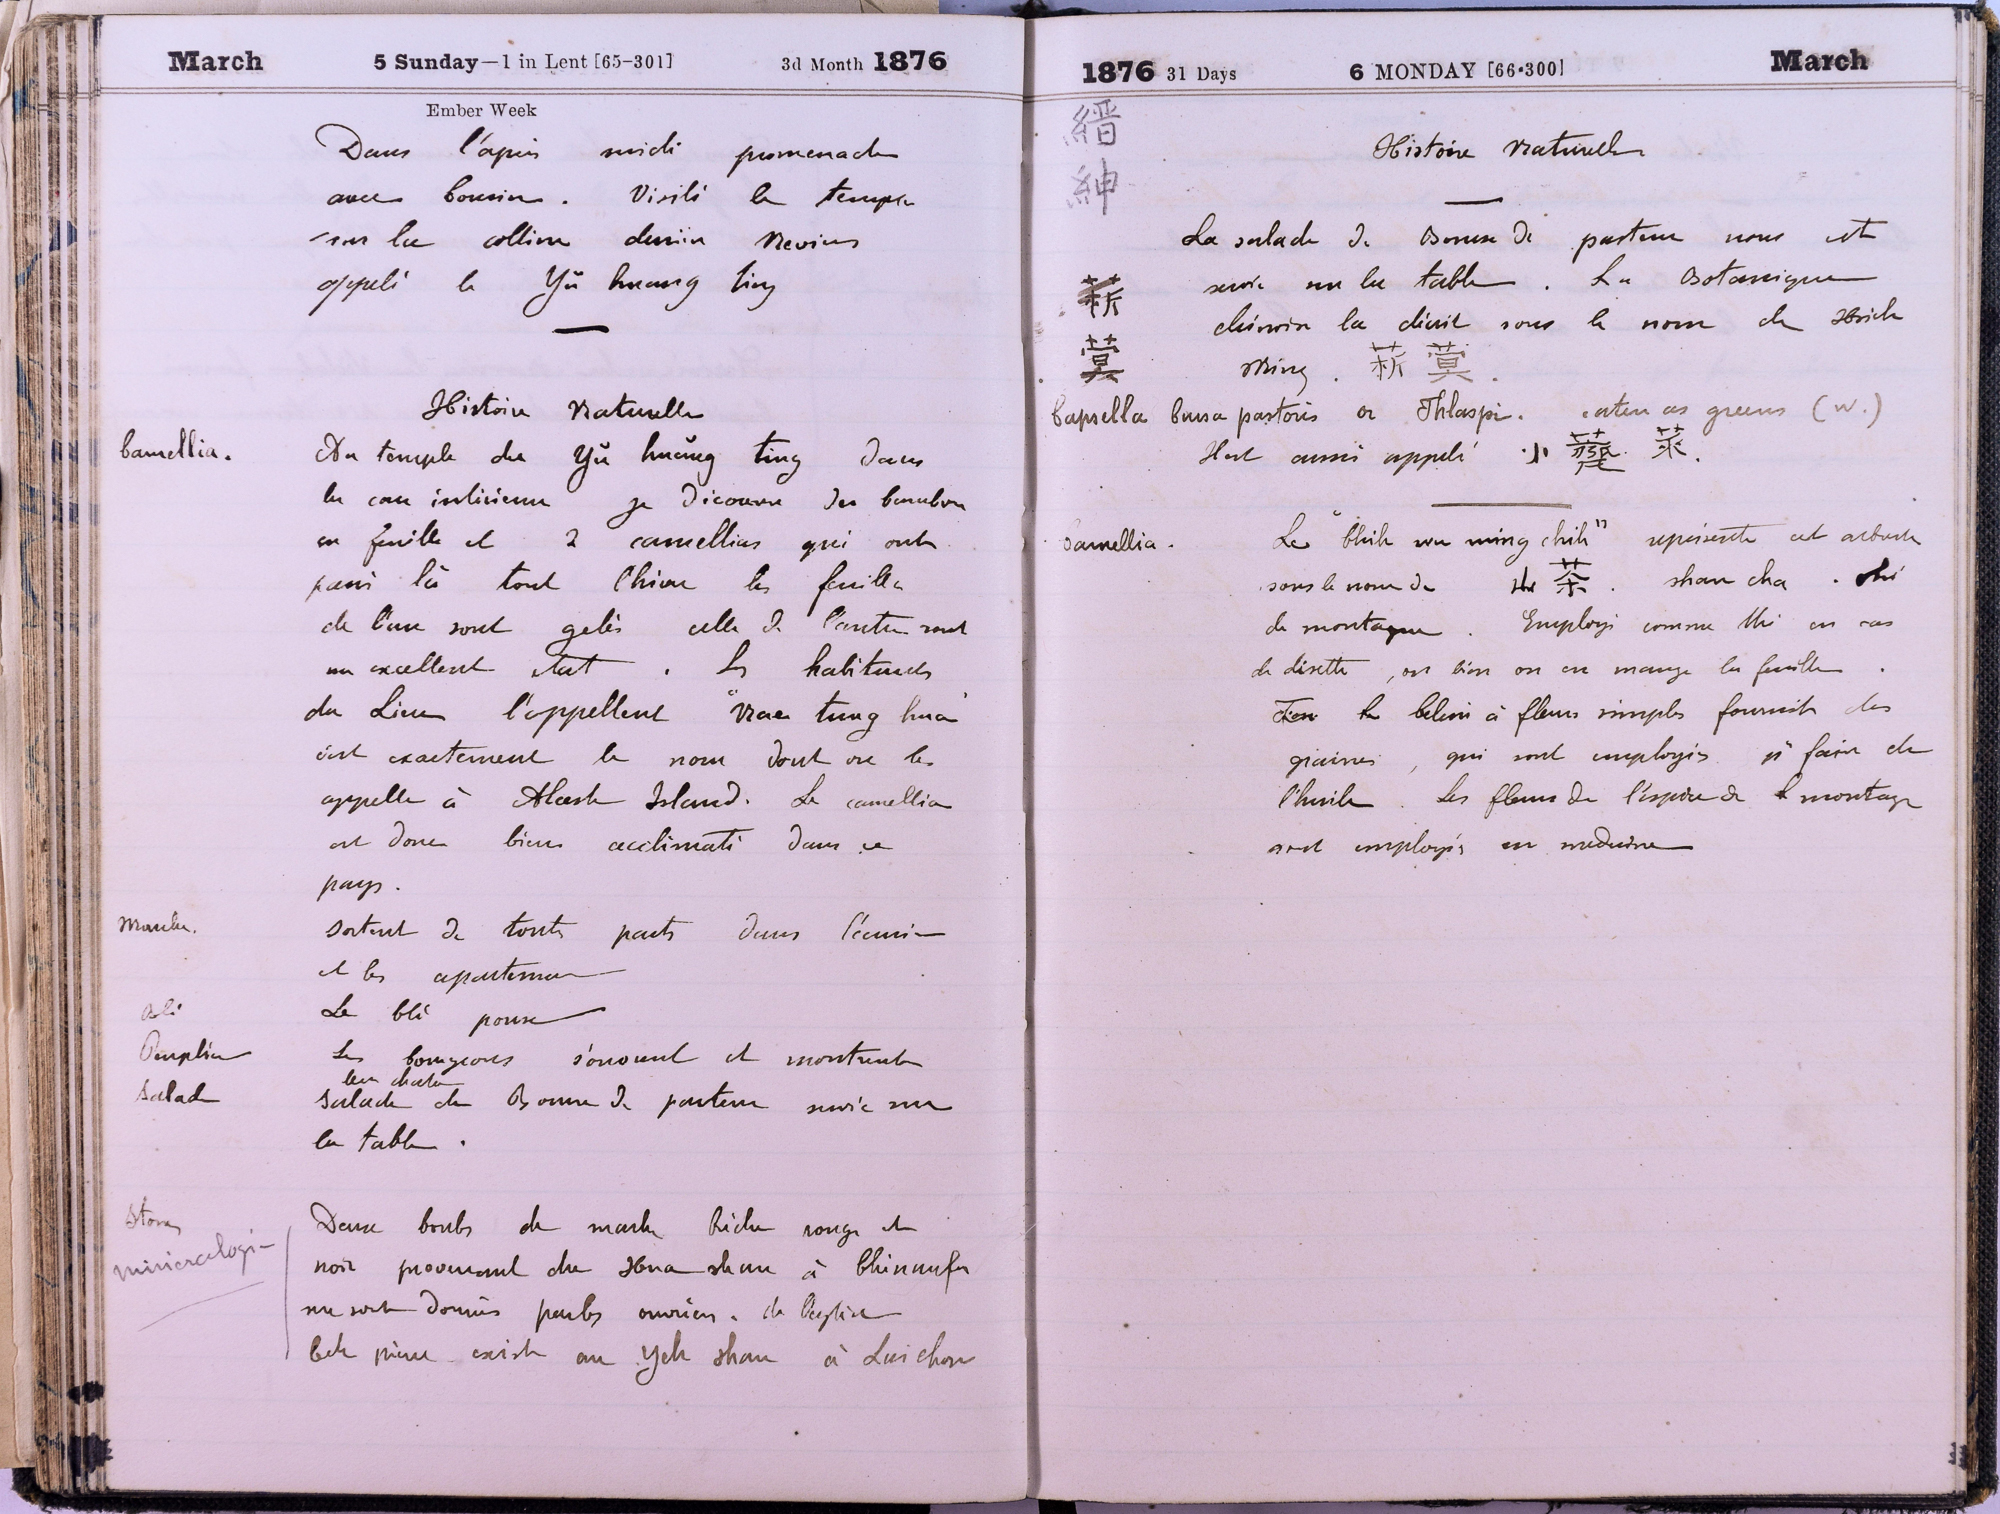 March 5 Sunday—1 in Lent [65-301] 3d Month 1876
Ember Week
Dans l'après midi promenade
avec Cousin. Visité le temple
sur la colline derrière Nevius
appelé le Yü huang ting
Histoire Naturelle
Camellia. Au temple du Yü huang ting dans
la cour intérieure je découvre des bambou
en feuille et 2 camellias qui ont
passé là tout l'hiver les feuilles
de l'un sont gelés celle de l'autre sont
en excellent état. Les habitants
du Lieu l'appellent "Nae tung hua
c'est exactement le nom dont on les
appelle à Island. Le camellia
est donc bien acclimaté dans ce
pays.
sortent de toute parts dans l'écurie
et les
Blé Le blé pousse
Les bourgeons s'ouvrent et montrent
leur chaton
Salade Salade de Bourse de pasteur servie sur
la table.
Stones
mineralogie
Deux boules de marbre riche rouge et
noir provenant du Hua shan à
me sont donnés par les ouvriers. de l'église
Cette pierre existe au Yeh shan à Laichow
1876 31 Days 6 MONDAY [66-300] March
縉
紳
Histoire Naturelle
La salade de Bourse de pasteur nous est
servie sur la table. La Botanique
chinoise la décrit sous le nom de Hsieh
Ming. 菥蓂.
菥
蓂
Capsella bursa pastoris or Thlaspi. eaten as greens (W.)
Il est aussi appelé 小 菜.
Camellia. Le "Chih wu ming chih" représente cet arbuste
sous le nom de 山茶. shan cha. thé
de montagne. Employé comme thé en cas
de disette, ou bien on en mange la feuille.
à fleurs simples fournit des
graines, qui sont employés à faire de
l'huile. Les fleurs de l'espèce de montagne
sont employés en medecine